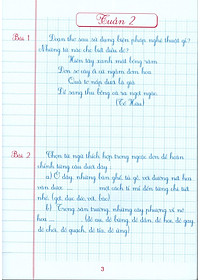 Tuần 2
Bài 1 Đoạn thơ sau sử dụng biện pháp nghệ thuật gì?
Những từ nào cho biết điều đó?
Hiên tây xanh mát bóng râm
Dơn se cây ổi cá ngâm đơm hoa
Quả to nấp dưới lá già
Để sang thu bỗng oà ra ngọt ngào.
(Tế Hanh)
Bài 2 Chọn từ ngữ thích hợp trong ngoặc đơn để hoàn
chỉnh từng câu dưới đây:
a) Ở đây, những bàn ghế, tủ, giá, với đường nét hoa
văn được ... một cách tỉ mỉ đến từng chi tiết
nhỏ. (gọt, đục, đẽo, vót, bào)
b) Trong sân trường, những cây phượng vĩ nở
hoa ... (đỏ au, đỏ bừng, đỏ đắn, đỏ hoe, đỏ gay,
đỏ chói, đỏ quạch, đỏ tía, đỏ ửng)
3